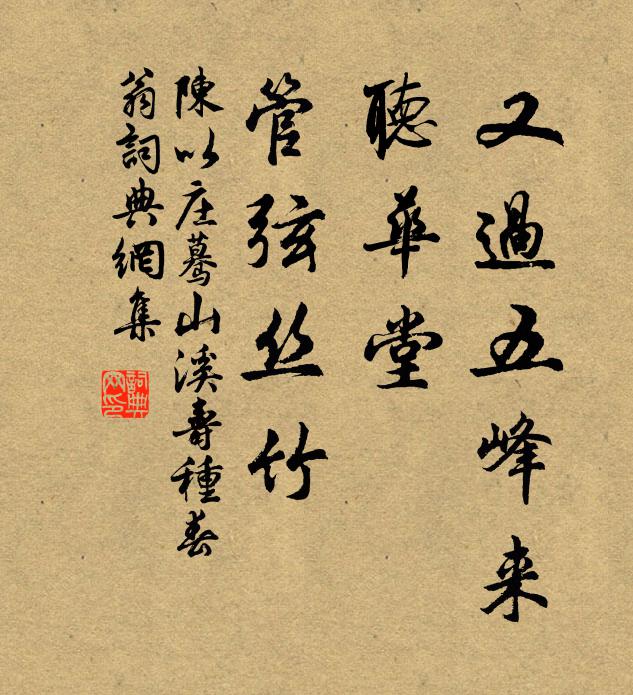 又過五峰来
聽華堂
管弦丝竹
陳以庄驀山溪壽種春
翁詞典網集
詞典
网印